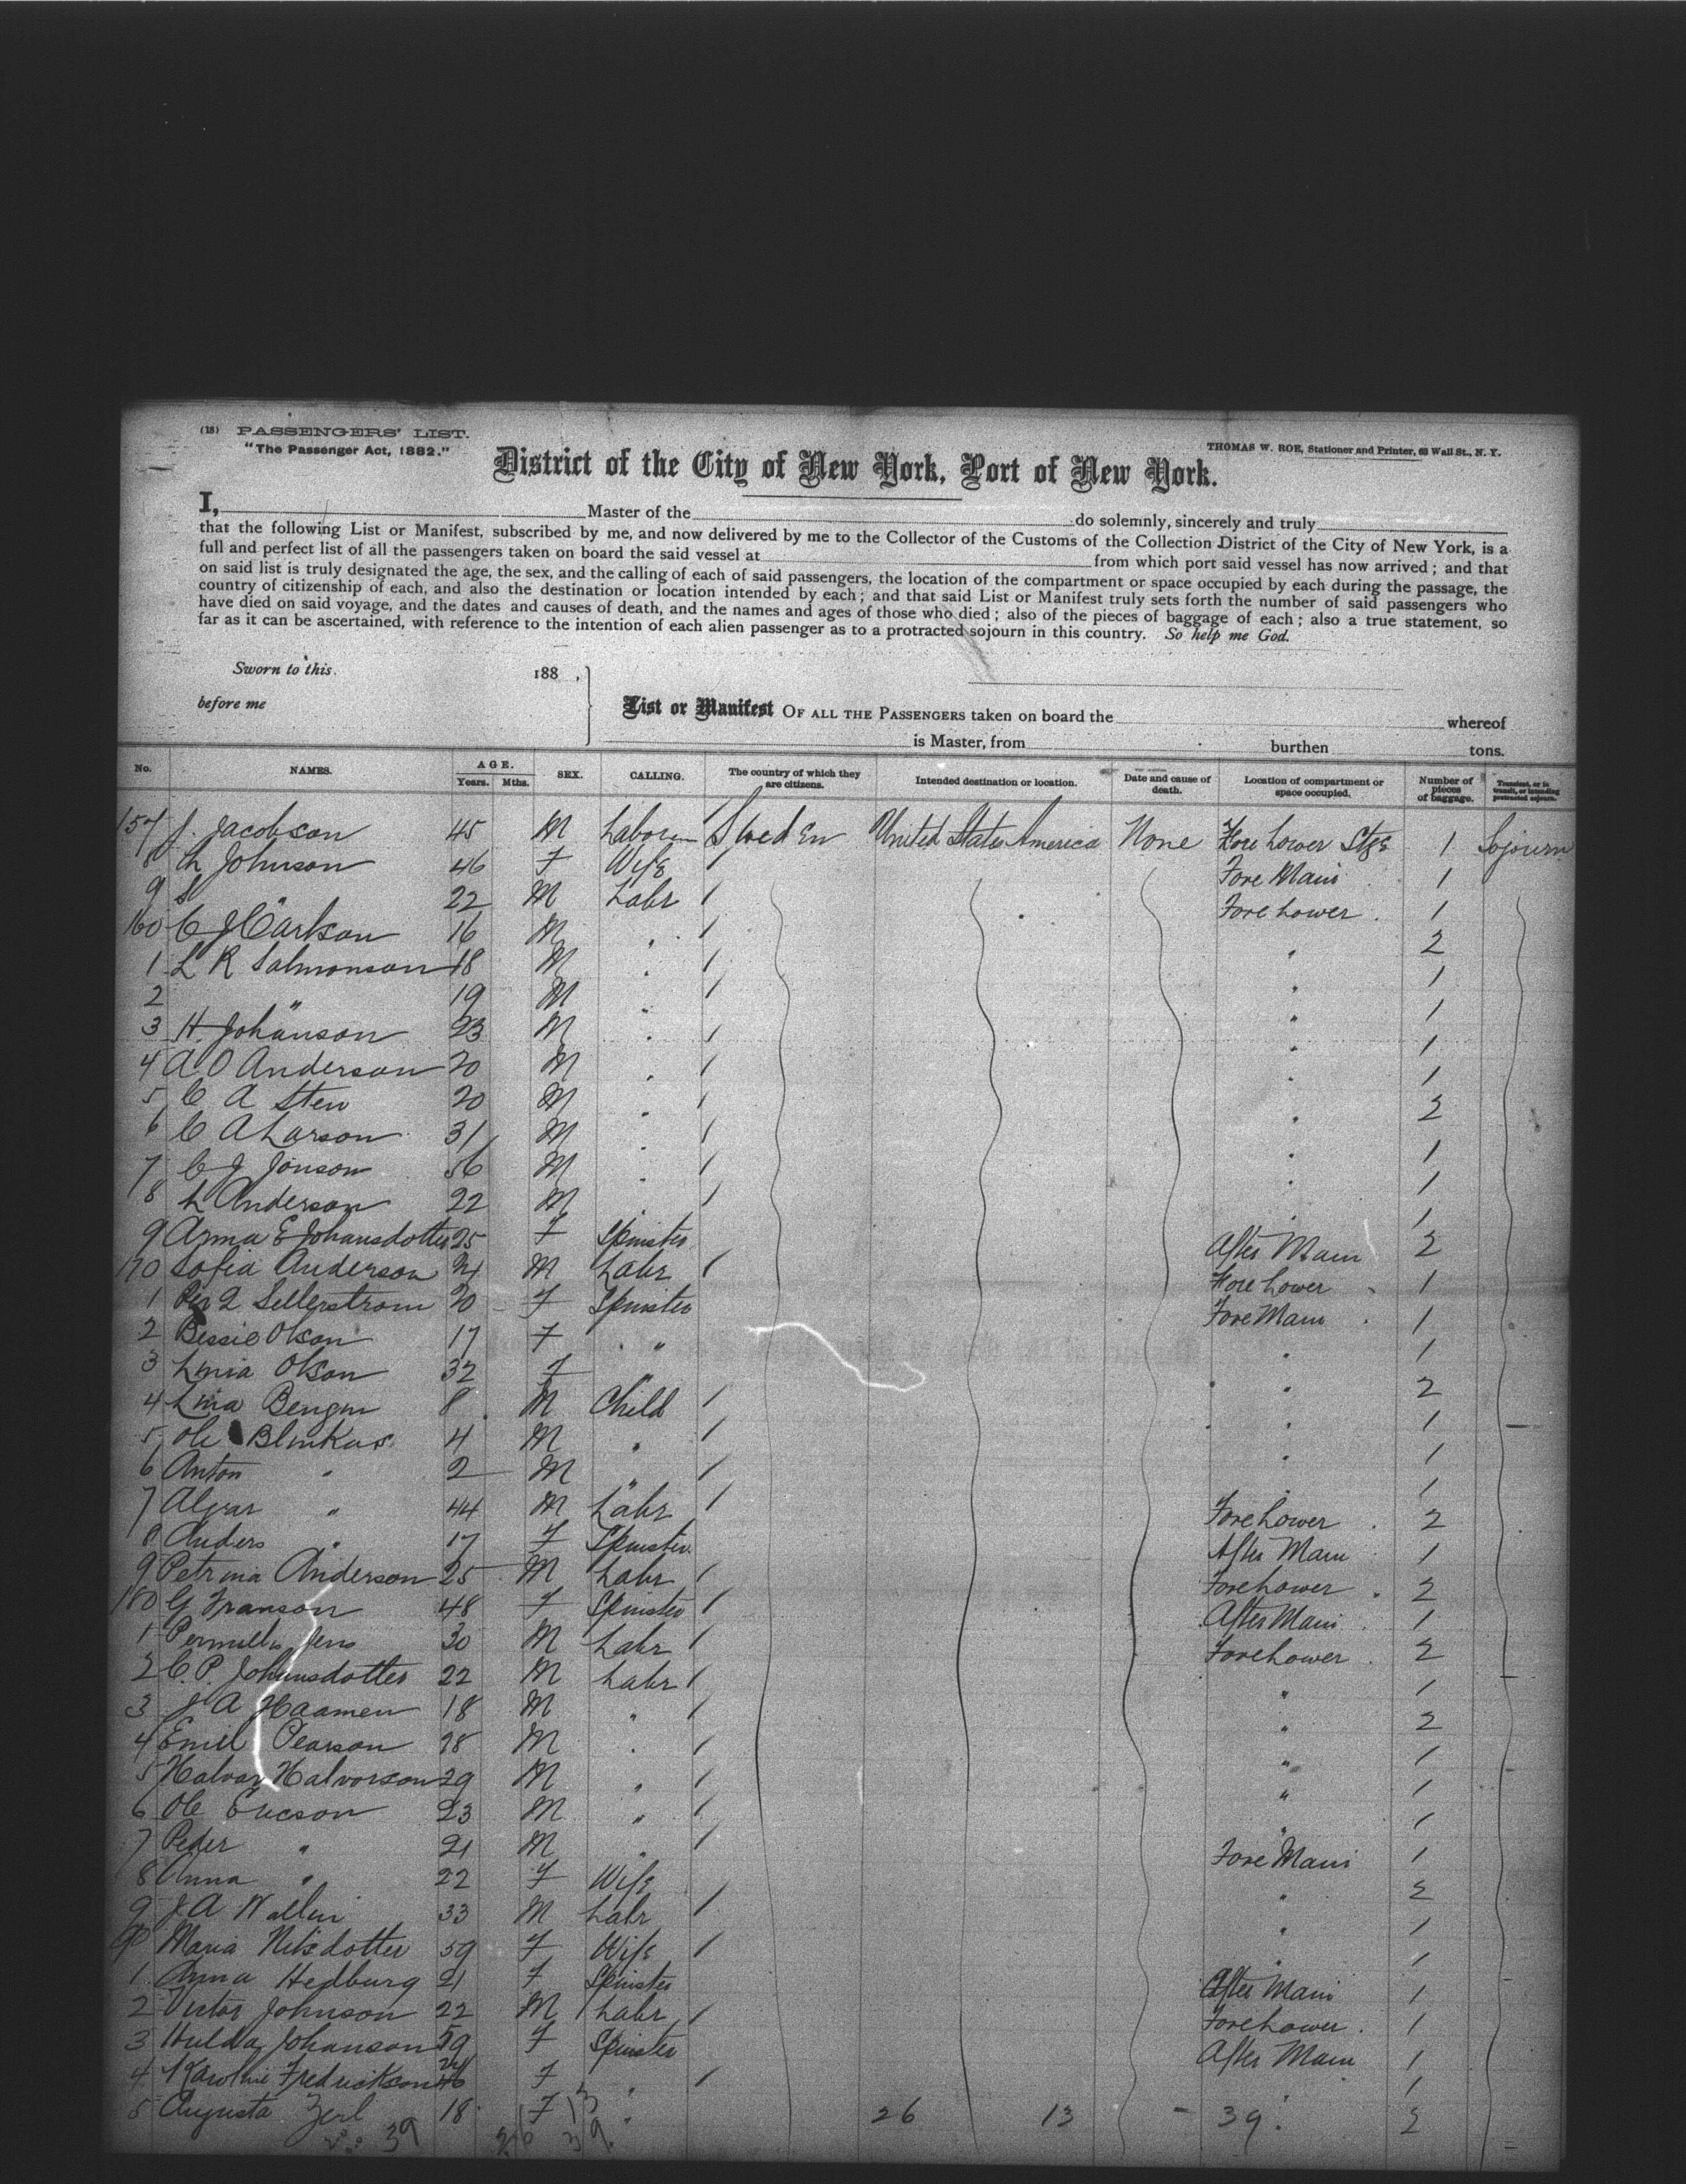 (18) PASSENGERS' LIST.
"The Passenger Act, 1882."
THOMAS W. ROE, Stationer and Printer, 63 Wall St., N. Y.
District of the City of New York, Port of New York.
I, Master of the do solemnly, sincerely and truly
that the following List or Manifest, subscribed by me, and now delivered by me to the Collector of the Customs of the Collection District of the City of New York, is a
full and perfect list of all the passengers taken on board the said vessel at from which port said vessel has now arrived; and that
on said list is truly designated the age, the sex, and the calling of each of said passengers, the location of the compartment or space occupied by each during the passage, the
country of citizenship of each, and also the destination or location intended by each; and that said List or Manifest truly sets forth the number of said passengers who
have died on said voyage, and the dates and causes of death, and the names and ages of those who died; also of the pieces of baggage of each; also a true statement, so
far as it can be ascertained, with reference to the intention of each alien passenger as to a protracted sojourn in this country. So help me God.
Sworn to this 188 ,
before me
List or Manifest OF ALL THE PASSENGERS taken on board the whereof
is Master, from burthen tons.
No. NAMES. AGE. Years. Mths. SEX. CALLING. The country of which they are citizens. Intended destination or location. Date and cause of death. Location of compartment or space occupied. Number of pieces of baggage. Transient, or in transit, or intending protracted sojourn.
157 J. Jacobson 45 M Laborer Sweden United States America None Fore Lower Stge 1 Sojourn
8 L Johnson 46 F Wife / Fore Main 1
9 " 22 M Labr / Fore Lower 1
160 C J Carlson 16 M " / " 2
1 L R Salmonson 18 M " / " 1
2 " 19 M " / " 1
3 H. Johanson 23 M " / " 1
4 A O Anderson 20 M " / " 1
5 C A Sten 20 M " / " 2
6 C A Larson 31 M " / " 1
7 C J Jonson 56 M " / " 1
8 L Anderson 22 M " / " 1
9 Anna E Johansdotter 25 F Spinster After Main 2
170 Sofia Anderson 21 M Labr / Fore Lower 1
1 Per Sellerstrom 20 F Spinster Fore Main 1
2 Bessie Olson 17 F " " 1
3 Olson 32 F " " 2
4 Lina 8 M Child / " 1
5 Ole 4 M " / " 1
6 Anton " 2 M " / " 1
7 " 44 M Labr / Fore Lower 2
8 Anders " 17 F Spinster After Main 1
9 Petrina Anderson 25 M Labr / Fore Lower 2
180 G Franson 48 F Spinster / After Main 1
1 Pernilla Jens 30 M Labr / Fore Lower 2
2 C. P. Johansdotter 22 M Labr / " 1
3 J A Haamen 18 M " / " 2
4 Emil Pearson 28 M " / " 1
5 Halvar Halvorson 29 M " / " 1
6 Ole Ericson 23 M " / " 1
7 Peder " 21 M " / Fore Main 1
8 Anna " 22 F Wife " 2
9 J A Wallin 33 M Labr / " 1
90 Maria Nilsdotter 59 F Wife / " 1
1 Anna Hedburg 21 F Spinster After Main 1
2 Victor Johnson 22 M Labr / Fore Lower 1
3 Hulda Johanson 59 F Spinster After Main 1
4 Karoline Fredrickson F " / " 1
5 Augusta 18 F " 26 13 - 39 2
39 26 13 39